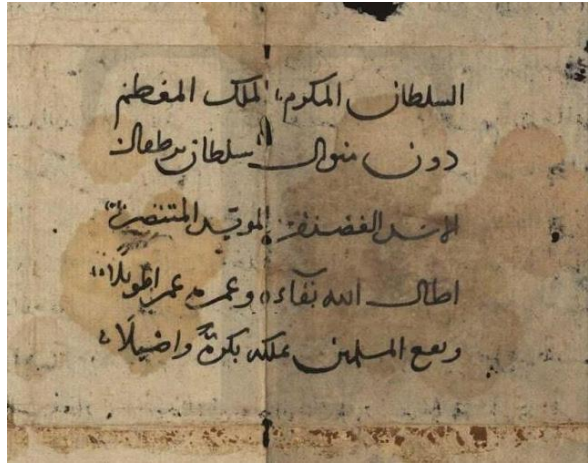 السلطان المكرم الملك المعظم
دون منوال سلطان برطقال
الاسد الغضنفر المويد المنتصر
اطال الله بقاءه وعمره عمرا طويلا
ونفع المسلمين بملكه بكرة واصيلا